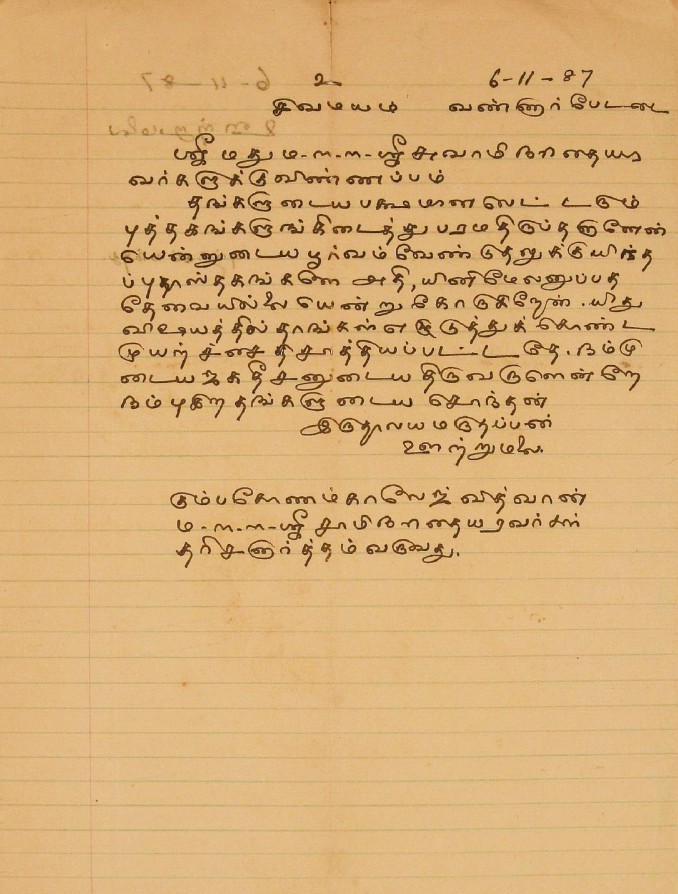 உ 6-11-87
சிவமயம் வண்ணார்பேட்டை
ஸ்ரீமது ம-ள-ள-ஸ்ரீ சுவாமிநாதையர
வர்களுக்கு விண்ணப்பம்
தங்களுடைய பக்ஷமான லெட்டரும்
புத்தகங்களுங்கிடைத்து பரம திருப்தளுனேன்
யென்னுடைய பூர்வம் வேண்டுதலுக்கு யிந்த
ப்புதாஸ்தகங்களே அதி, யினிமேலனுப்பத்
தேவையில்லை யென்று கோடுகிறேன். யிது
விஷயத்தில் தாங்கள் எடுத்துக் கொண்ட
முயற்சி சத்தியப்பட்டதே. நம்மு
டைய ஜகதீசனுடைய திருவருளென்றே
நம்புகிற தங்களுடைய சொந்தன்
இருதாலய மருதப்பன்
ஊற்றுமலை.
கும்பகோணம் காலேஜ் வித்வான்
ம-ள-ள-ஸ்ரீ சாமிநாதையரவர்கள்
தரிசனார்த்தம் வருவது.